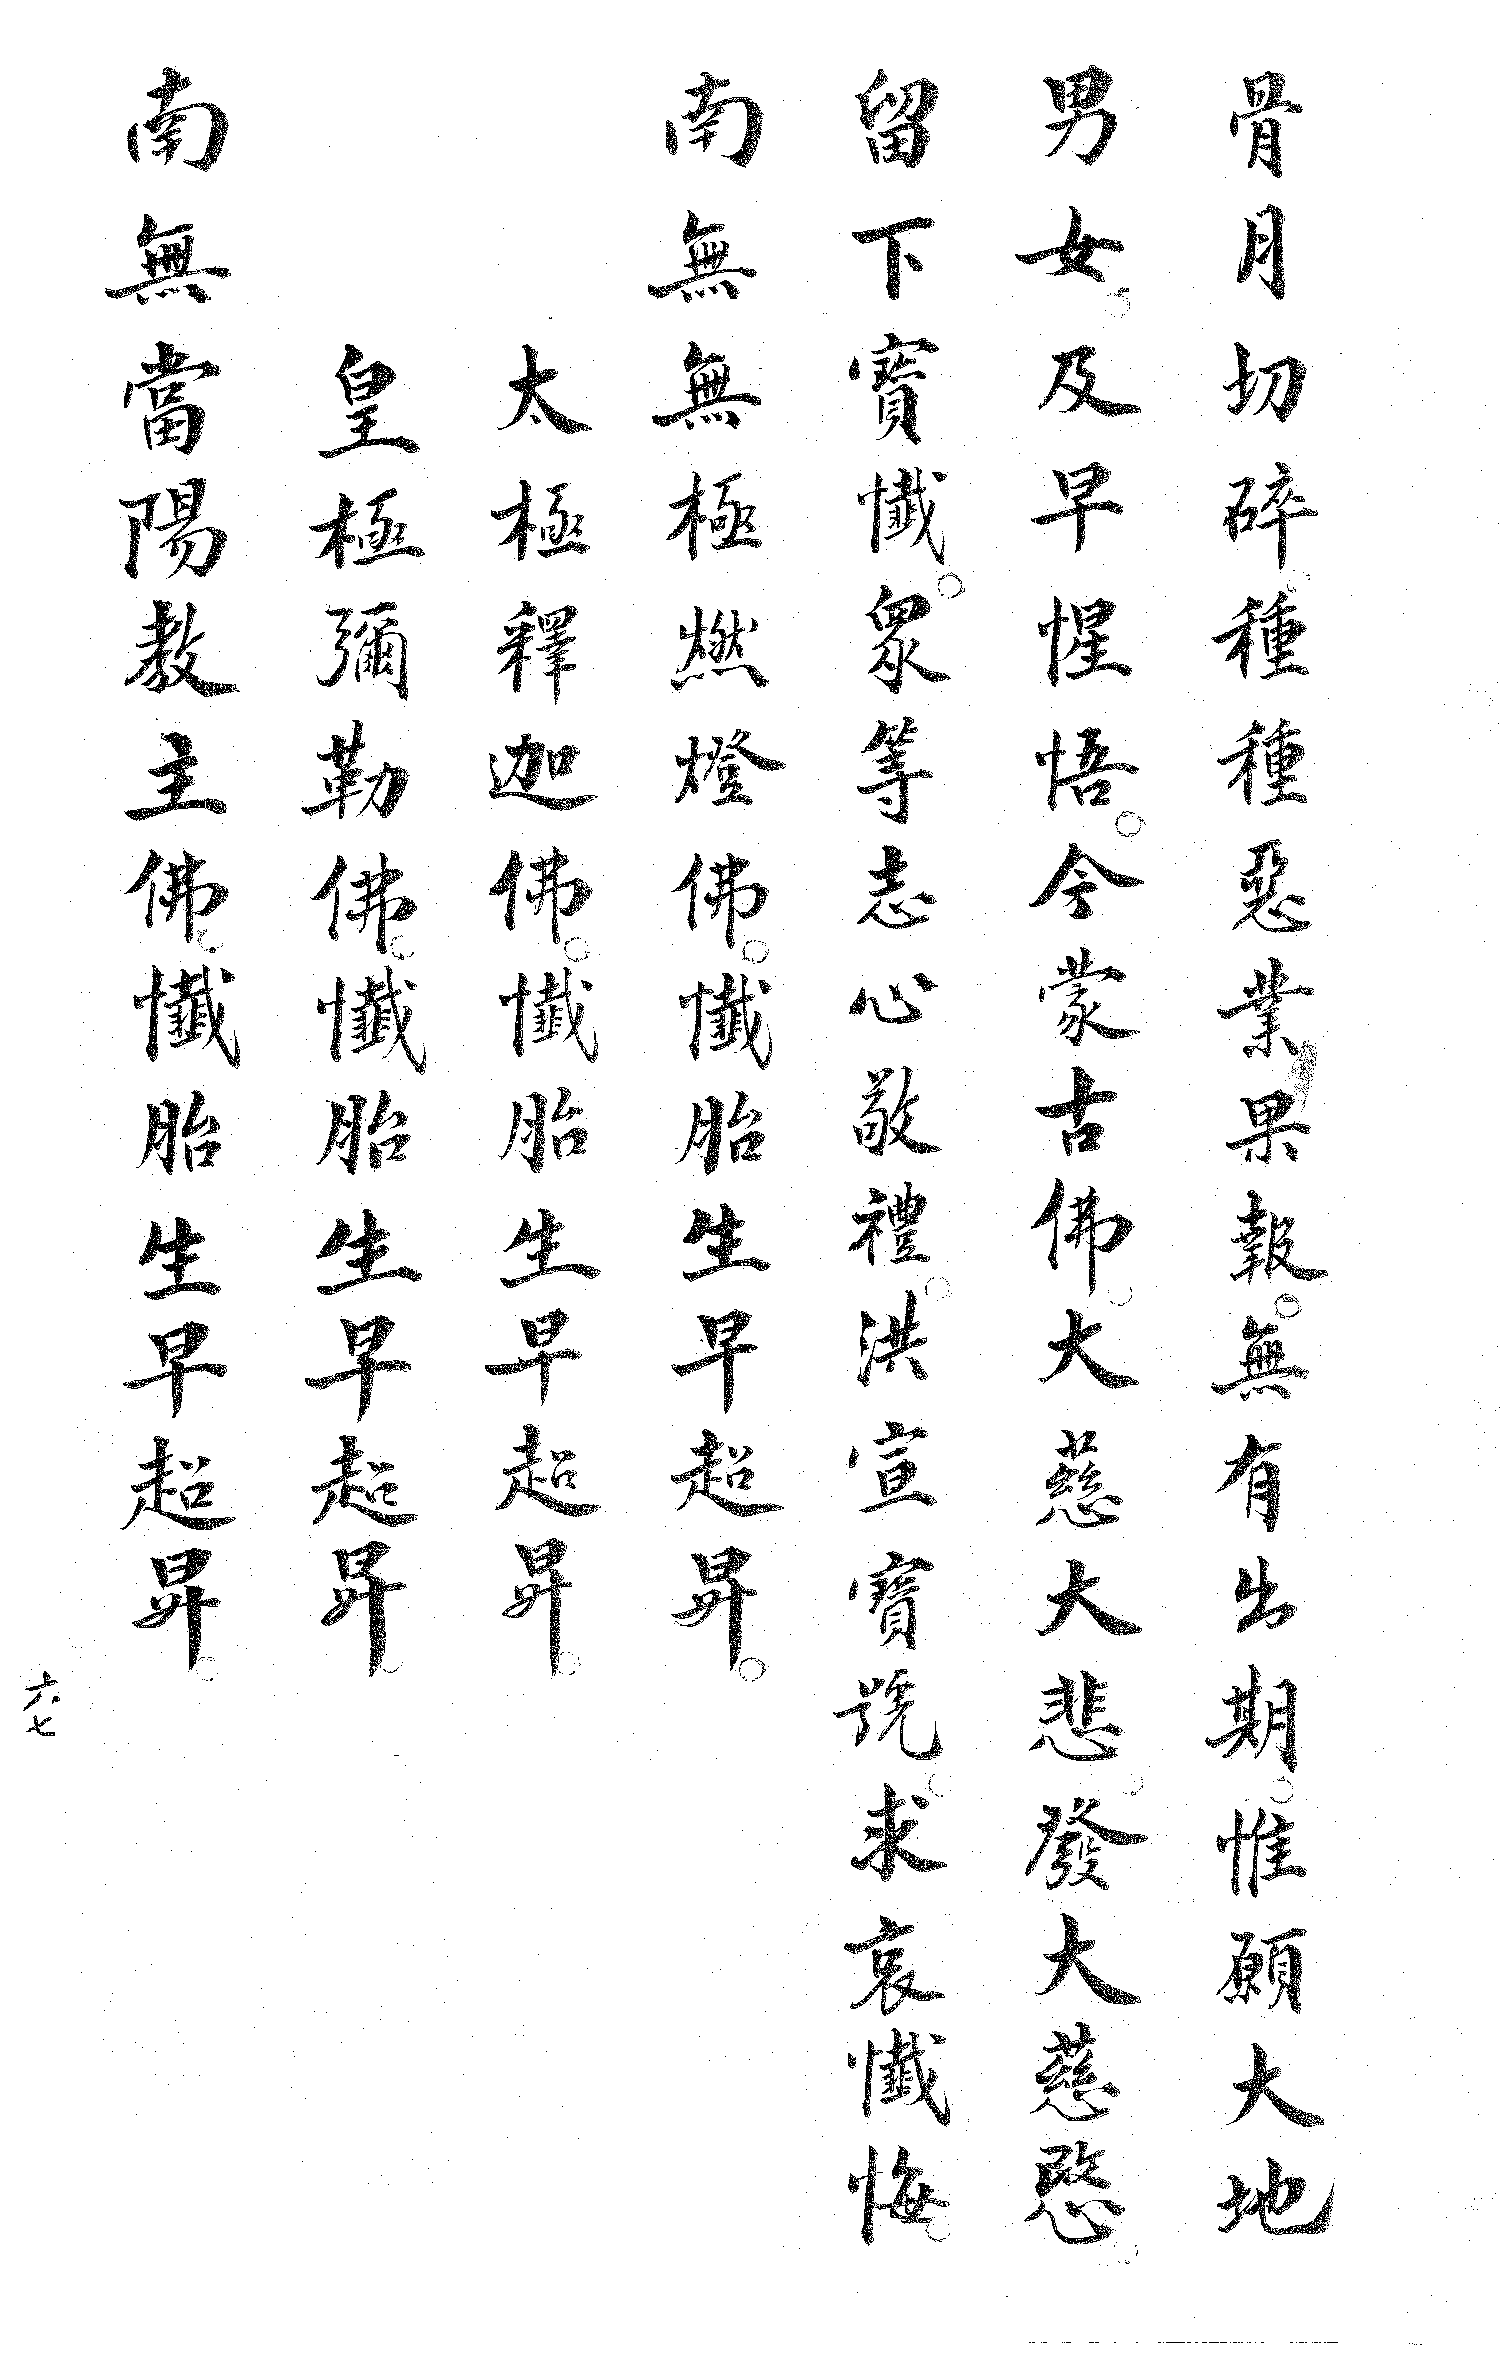 骨月切碎。種種惡業果報。無有出期。惟願大地
男女。及早惺悟。今蒙古佛。大慈大悲。發大慈愍。
留下寶懺。眾等志心敬禮。洪宣寶號。求哀懺悔。
南無無極燃燈佛。懺胎生早超昇。
太極釋迦佛。懺胎生早超昇。
皇極彌勒佛。懺胎生早超昇。
南無當陽教主佛。懺胎生早超昇。
六七